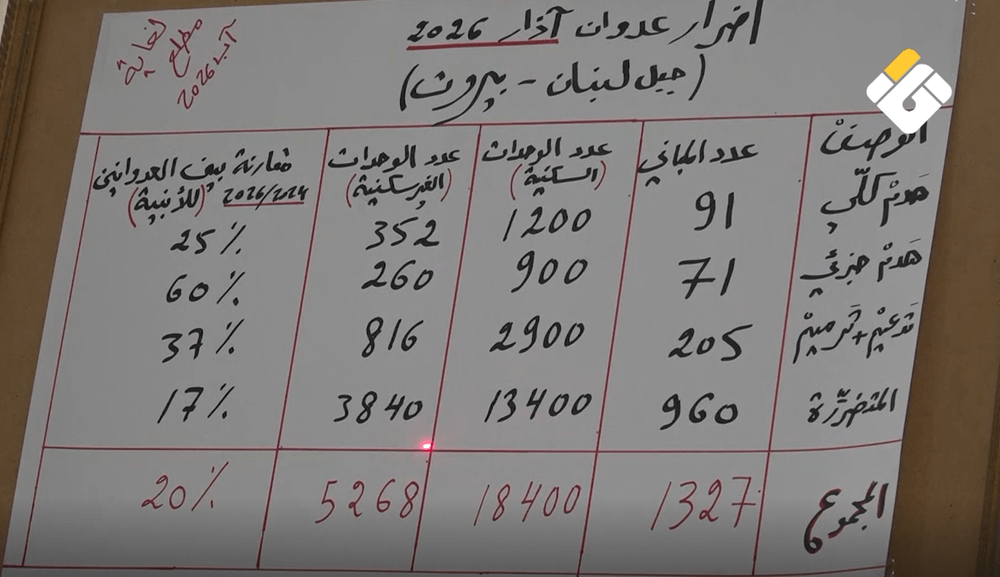 اضرار عدوان آذار 2026
(جبل لبنان - بيروت)
لغاية
مطلع
آب 2026
الوصف	عدد المباني	عدد الوحدات (السكنية)	عدد الوحدات (الغير سكنية)	مقارنة بين العدوانين 2026/2024 (للأبنية)
هدم كلّي	91	1200	352	25%
هدم جزئي	71	900	260	60%
تدعيم + ترميم	205	2900	816	37%
المتضرّرة	960	13400	3840	17%
المجموع	1327	18400	5268	20%